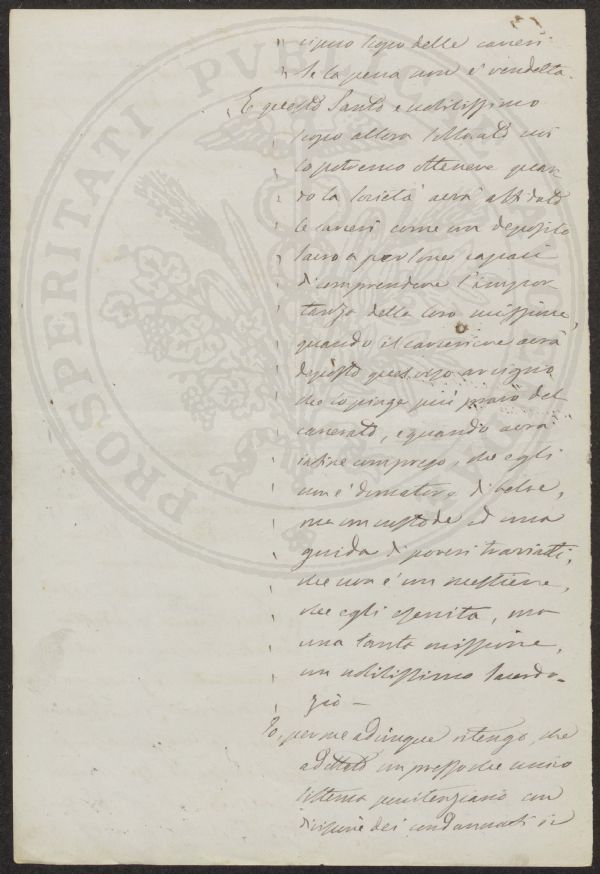 " cipuo scopo delle carceri
" se la pena non è vendetta.
„ E questo santo e nobilissimo
" scopo allora soltanto noi
" lo potremo ottenere quan-
" do la società avrà affidato
" le carceri come un deposito
" sacro a persone capaci
" di comprendere l'impor-
" tanza della loro missione,
" quando il carceriere avrà
" deposto quel viso arcigno
" che lo pinge più pravo del
" carcerato, e quando avrà
" infine compreso, che egli
" non è domatore di belve,
" ma un custode ed una
" guida di poveri traviati,
" che non è un mestiere,
" che egli esercita, ma
" una santa missione,
" un nobilissimo sacerdo-
" zio —
Io, per me adunque ritengo, che
adottato un presso che unico
sistema penitenziario con
divisione dei condannati in
PROSPERITATI PUBLICAE AUGENDAE